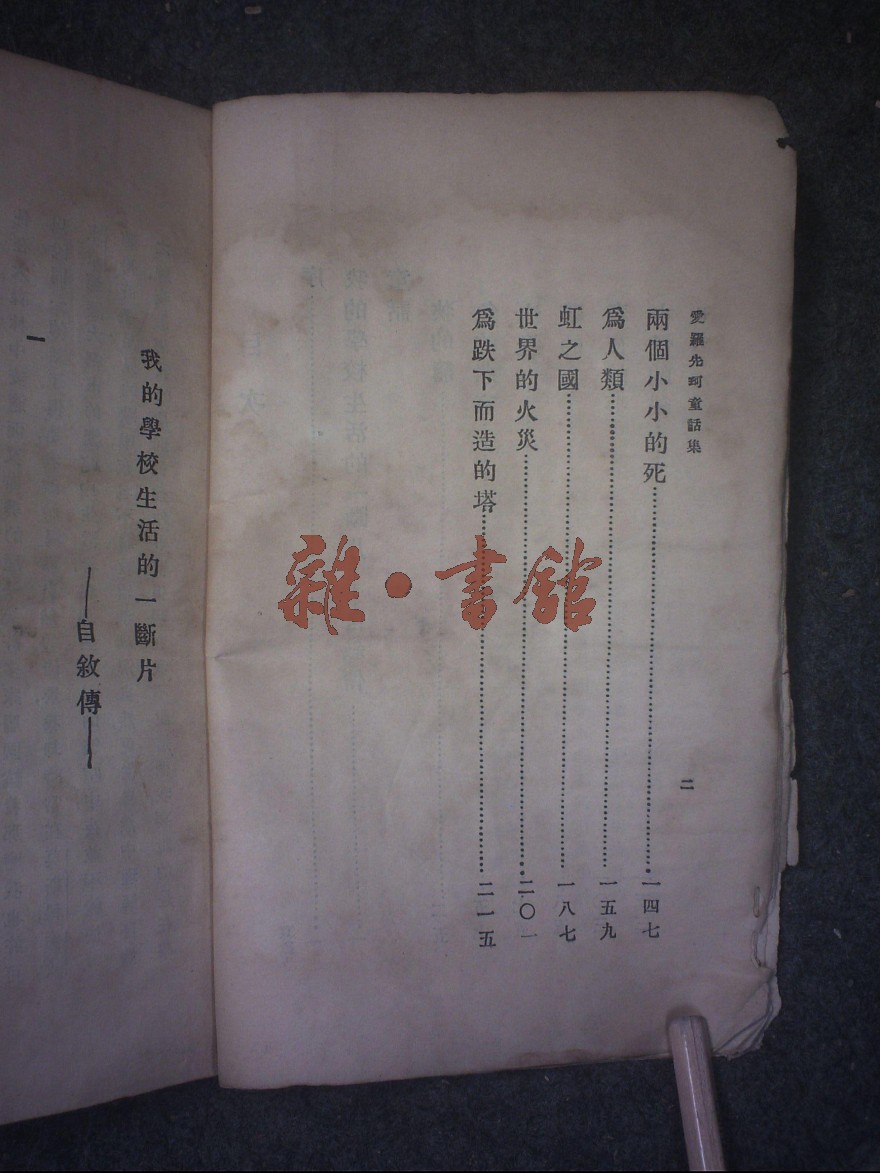 愛羅先珂童話集
二
兩個小小的死……一四七
爲人類……一五九
虹之國……一八七
世界的火災……二〇一
爲跌下而造的塔……二一五
雜·書舘
我的學校生活的一斷片
——自敘傳——
一